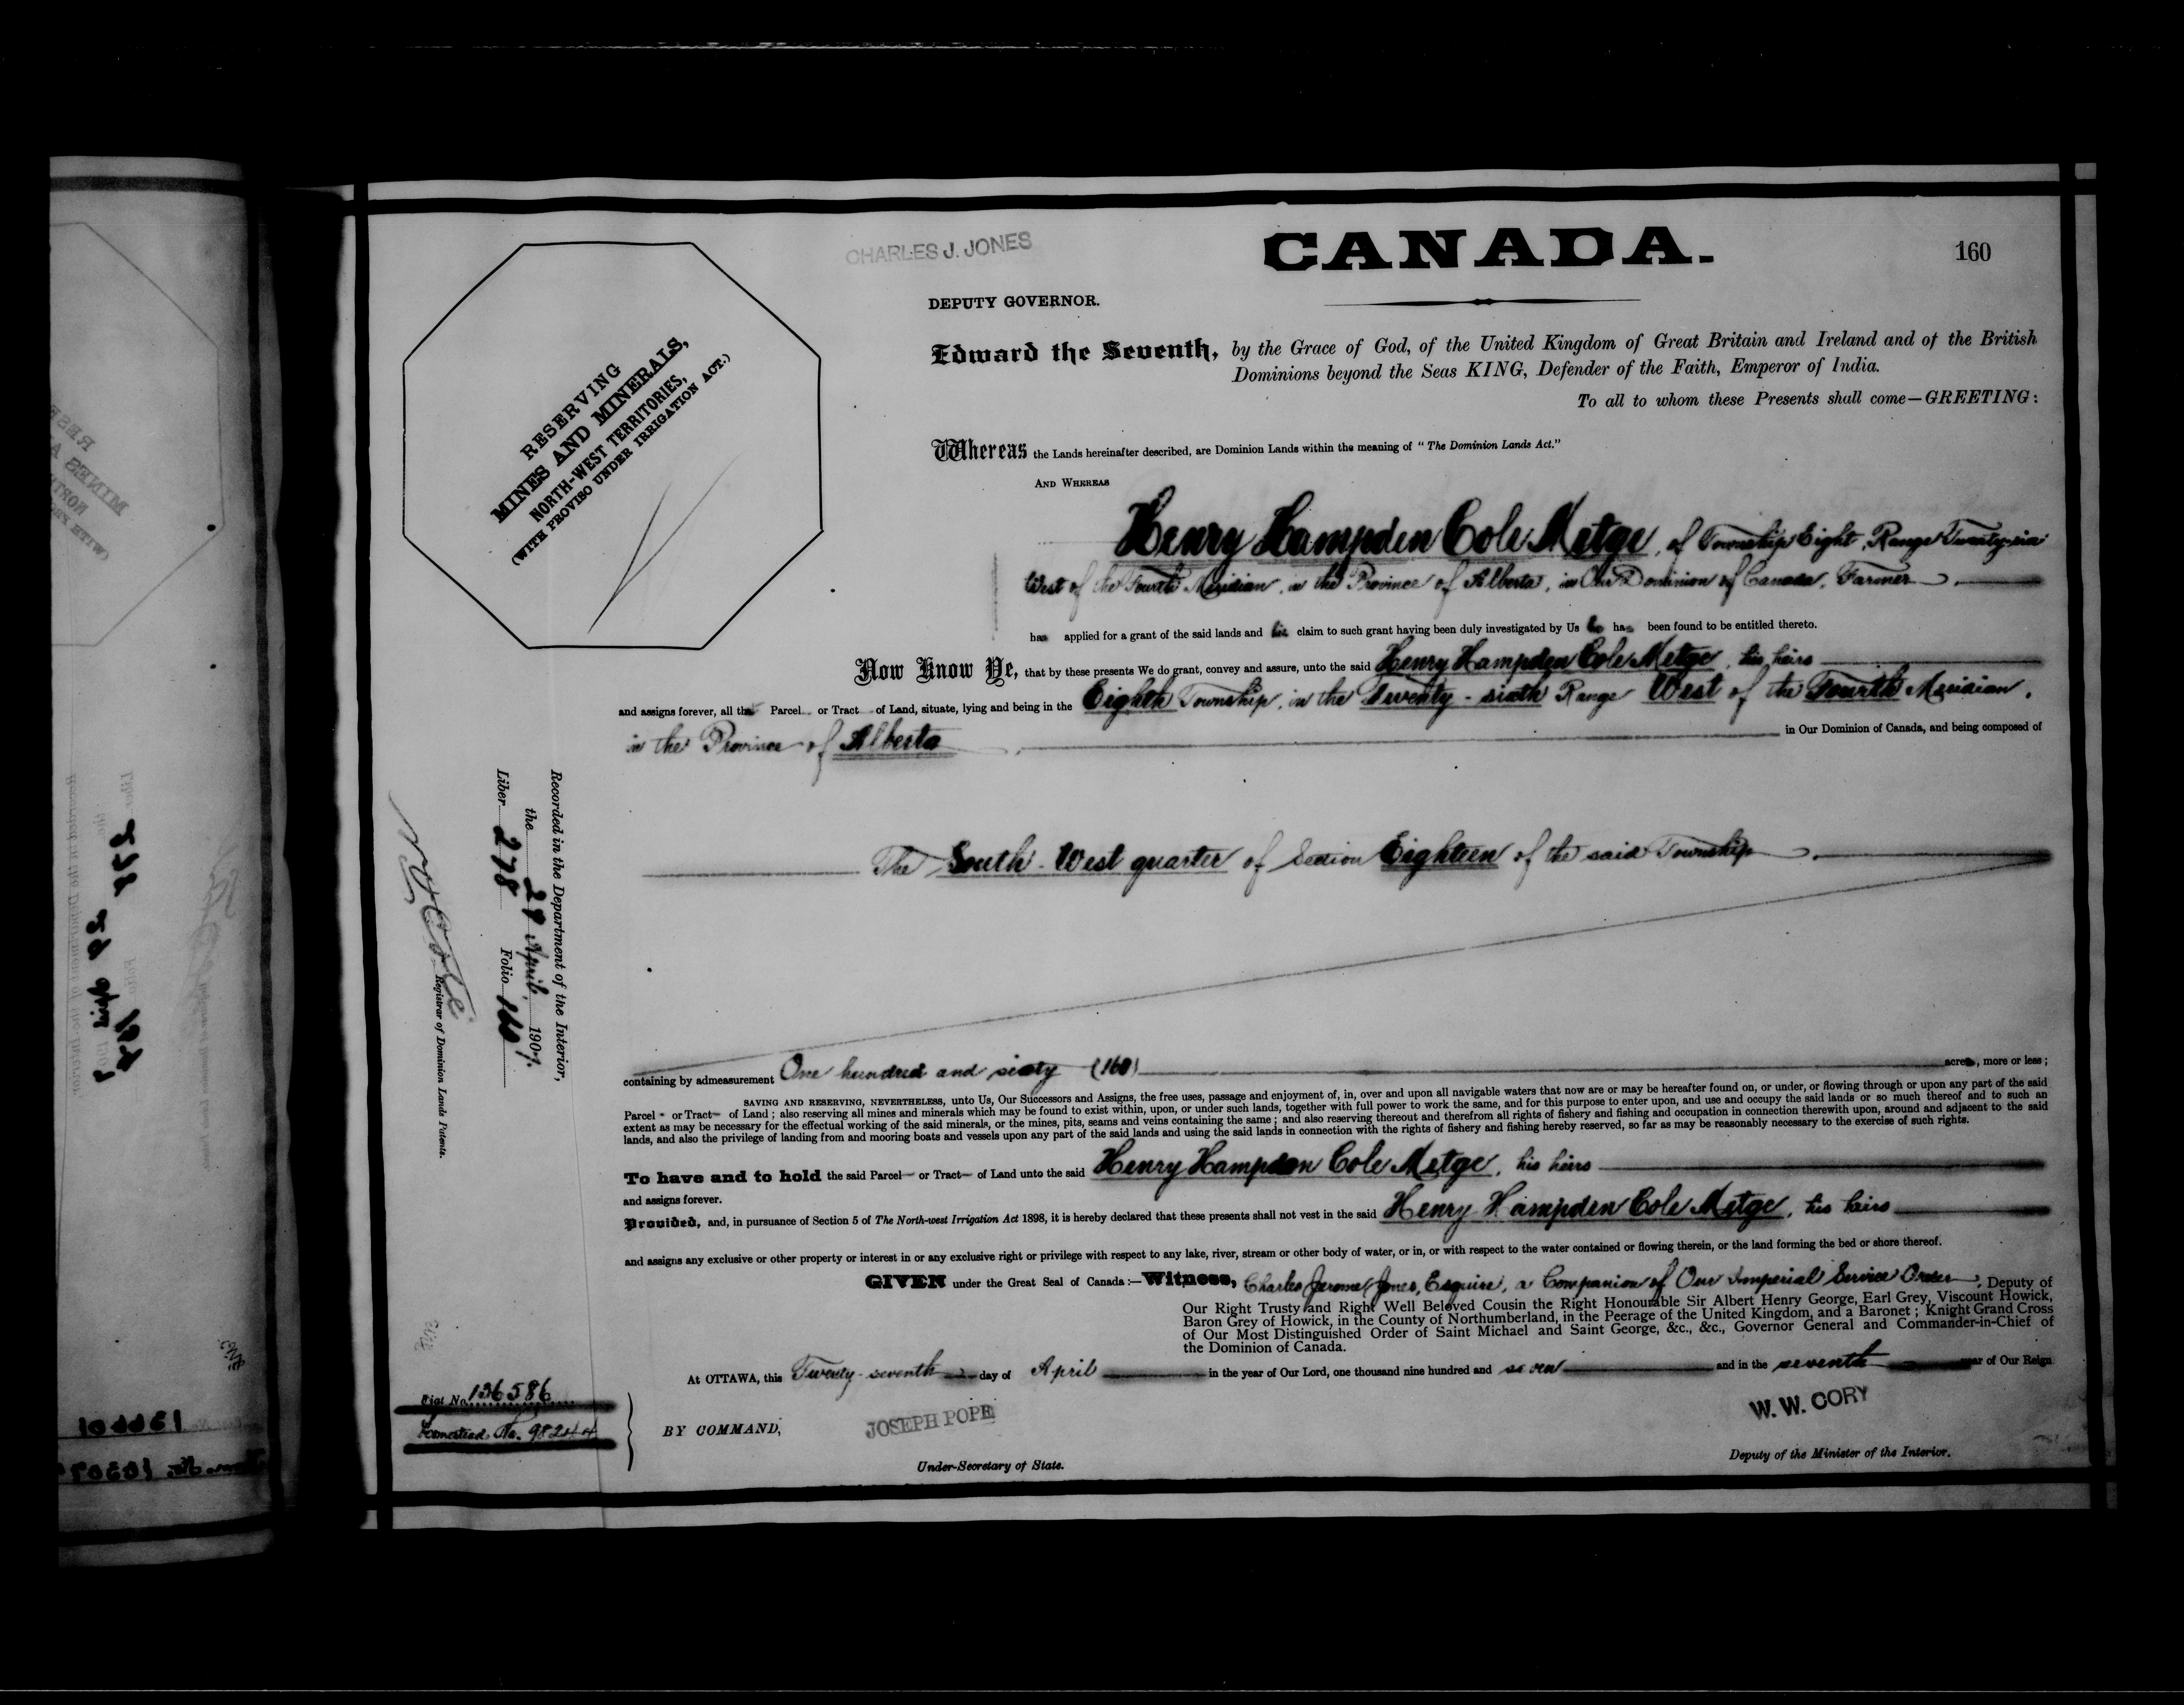 CHARLES J. JONES
CANADA.
160
DEPUTY GOVERNOR.
RESERVING
MINES AND MINERALS,
NORTH-WEST TERRITORIES,
(WITH PROVISO UNDER IRRIGATION ACT.)
Edward the Seventh, by the Grace of God, of the United Kingdom of Great Britain and Ireland and of the British
Dominions beyond the Seas KING, Defender of the Faith, Emperor of India.
To all to whom these Presents shall come—GREETING:
Whereas the Lands hereinafter described, are Dominion Lands within the meaning of "The Dominion Lands Act."
AND WHEREAS
Henry Hampden Cole Metge, of Township Eight, Range Twenty-six
West of the Fourth Meridian, in the Province of Alberta, in Our Dominion of Canada, Farmer,
has applied for a grant of the said lands and his claim to such grant having been duly investigated by Us he has been found to be entitled thereto.
Now Know Ye, that by these presents We do grant, convey and assure, unto the said Henry Hampden Cole Metge, his heirs
and assigns forever, all that Parcel or Tract of Land, situate, lying and being in the Eighth Township, in the Twenty-sixth Range West of the Fourth Meridian,
in the Province of Alberta, in Our Dominion of Canada, and being composed of
The South-West quarter of Section Eighteen of the said Township.
containing by admeasurement One hundred and sixty (160) acres, more or less;
SAVING AND RESERVING, NEVERTHELESS, unto Us, Our Successors and Assigns, the free uses, passage and enjoyment of, in, over and upon all navigable waters that now are or may be hereafter found on, or under, or flowing through or upon any part of the said
Parcel or Tract of Land; also reserving all mines and minerals which may be found to exist within, upon, or under such lands, together with full power to work the same, and for this purpose to enter upon, and use and occupy the said lands or so much thereof and to such an
extent as may be necessary for the effectual working of the said minerals, or the mines, pits, seams and veins containing the same; and also reserving thereout and therefrom all rights of fishery and fishing and occupation in connection therewith upon, around and adjacent to the said
lands, and also the privilege of landing from and mooring boats and vessels upon any part of the said lands and using the said lands in connection with the rights of fishery and fishing hereby reserved, so far as may be reasonably necessary to the exercise of such rights.
To have and to hold the said Parcel or Tract of Land unto the said Henry Hampden Cole Metge, his heirs
and assigns forever.
Provided, and, in pursuance of Section 5 of The North-west Irrigation Act 1898, it is hereby declared that these presents shall not vest in the said Henry Hampden Cole Metge, his heirs
and assigns any exclusive or other property or interest in or any exclusive right or privilege with respect to any lake, river, stream or other body of water, or in, or with respect to the water contained or flowing therein, or the land forming the bed or shore thereof.
GIVEN under the Great Seal of Canada:—Witness, Charles Jerome Jones, Esquire, a Companion of Our Imperial Service Order, Deputy of
Our Right Trusty and Right Well Beloved Cousin the Right Honourable Sir Albert Henry George, Earl Grey, Viscount Howick,
Baron Grey of Howick, in the County of Northumberland, in the Peerage of the United Kingdom, and a Baronet; Knight Grand Cross
of Our Most Distinguished Order of Saint Michael and Saint George, &c., &c., Governor General and Commander-in-Chief of
the Dominion of Canada.
At OTTAWA, this Twenty-seventh day of April in the year of Our Lord, one thousand nine hundred and seven and in the seventh year of Our Reign
BY COMMAND,
JOSEPH POPE
Under-Secretary of State.
W. W. CORY
Deputy of the Minister of the Interior.
Recorded in the Department of the Interior,
the 29 April, 1907.
Liber 278 Folio 160
Registrar of Dominion Lands Patents.
Fiat No. 136586
Homestead No. 98244